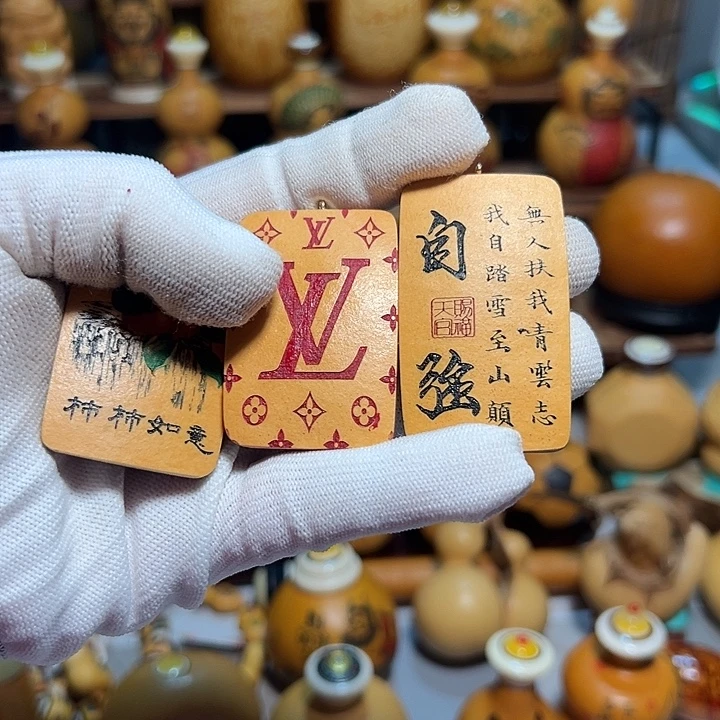 柿柿如意
LV
LV
自強
無人扶我青雲志
我自踏雪至山顛
天官
賜福